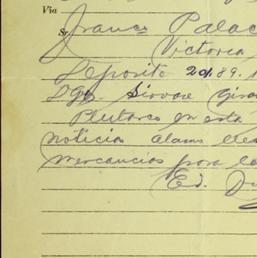 Via
Sr. Franco Palac
Victoria
Deposito 201.89.
Dgo Sirvase Gira
Plutarco en esta
noticias alamo
mercancias para
Ed.